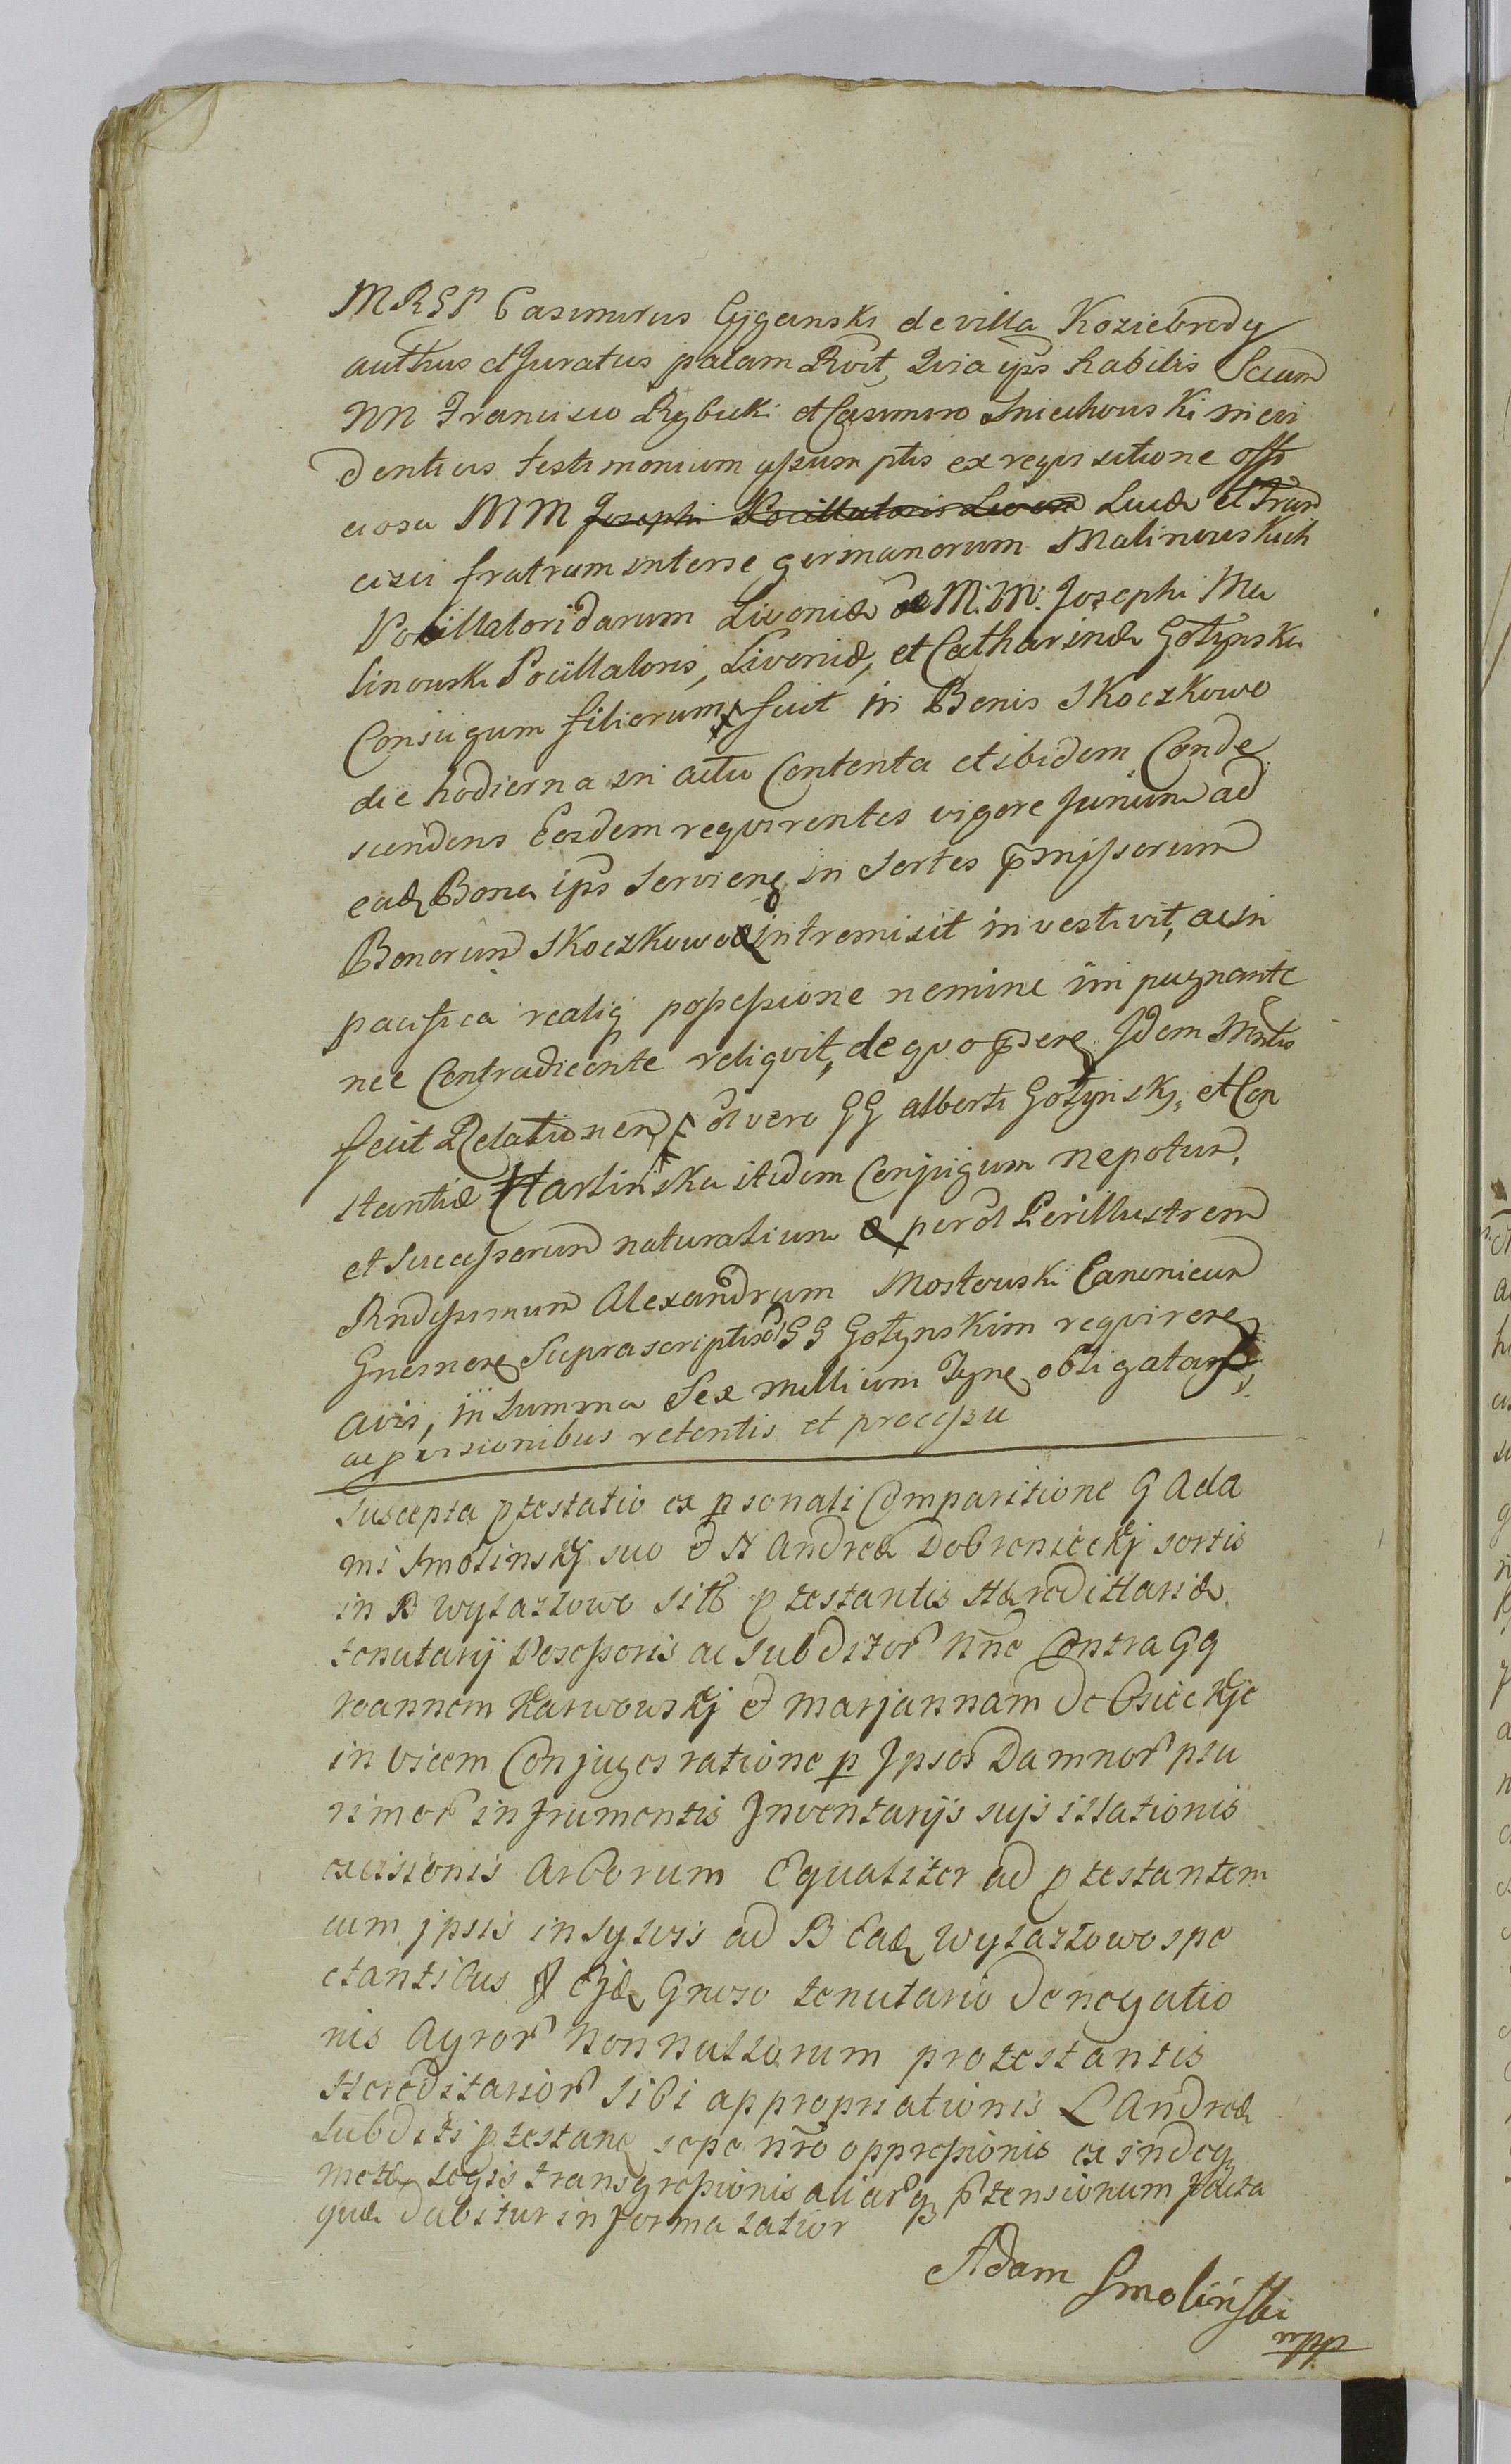 MRGP Casimirus Cyganski de villa Koziebrody
authus et Juratus palam Rvit, Quia ips habitis Secum
NN Francisco Rybicki et Casimiro Sniechowski in evi
dentius testimonium assumptis ex requisitione offi
ciosa MM Josephi Pocillatoris Livon Lucæ et Fran
cisci fratrum inter se germanorum Malinowskich
Pocillatoridarum Livoniæ M. M. Josephi Ma
linowski Pocillatoris, Livoniæ, et Catharinæ Gołynska
Conjugum filiorum fuit in Bonis Skoczkowo
die hodierna in actu Contenta et ibidem Conde
scendens Eosdem requirentes vigore Jurium ad
eadꝫ Bona ips servienꝫ in Sortes pmissorum
Bonorum Skoczkowo intromisit investivit, ac in
pacifica realiqꝫ possessione nemine impugnante
nec Contradicente reliquit, de quo Idem Mntis
fecit Relationem ol vero GG Alberti Gołynsky, et Con
stantiæ Karlinska itidem Conjugum nepotum,
et Successorum naturalium & per ol Perillustrem
Rndissimum Alexandrum Mostowski Canonicum
Gnesnen Suprascriptis ol GG Gołynskim requiren
avis, in Summa Sex millium Tynf obligatar
ac pvisionibus retentis et processu
Suscepta ptestatio ex psonali Comparitione G Ada
mi Smolinskj suo et H Andreæ Dobronieckj sortis
in B Wylazłowo sitæ ptestantis Hæredittariæ
tenutarij Possessoris ac subditor nne Contra GG
Joannem Karwowskj et Marjannam Debsieckje
invicem Conjuges ratione p Ipsos Damnor plu
rimor in frumentis Inventarijs sujs illationis
excissionis Arborum Equaliter ad ptestantem
cum ipsis in sylvis ad B Eadꝫ Wylazłowo spe
ctantibus Gneso tenutario denegatio
nis Agror Nonnullorum protestantis
Hereditarior sibi appropriationis L Andreæ
subditi ptestanꝫ sepe nro oppressionis ex indeqꝫ
legis transgressionis aliarqꝫ ptensionum facta
quæ dabitur in forma latior
Adam Smoliński
mpp